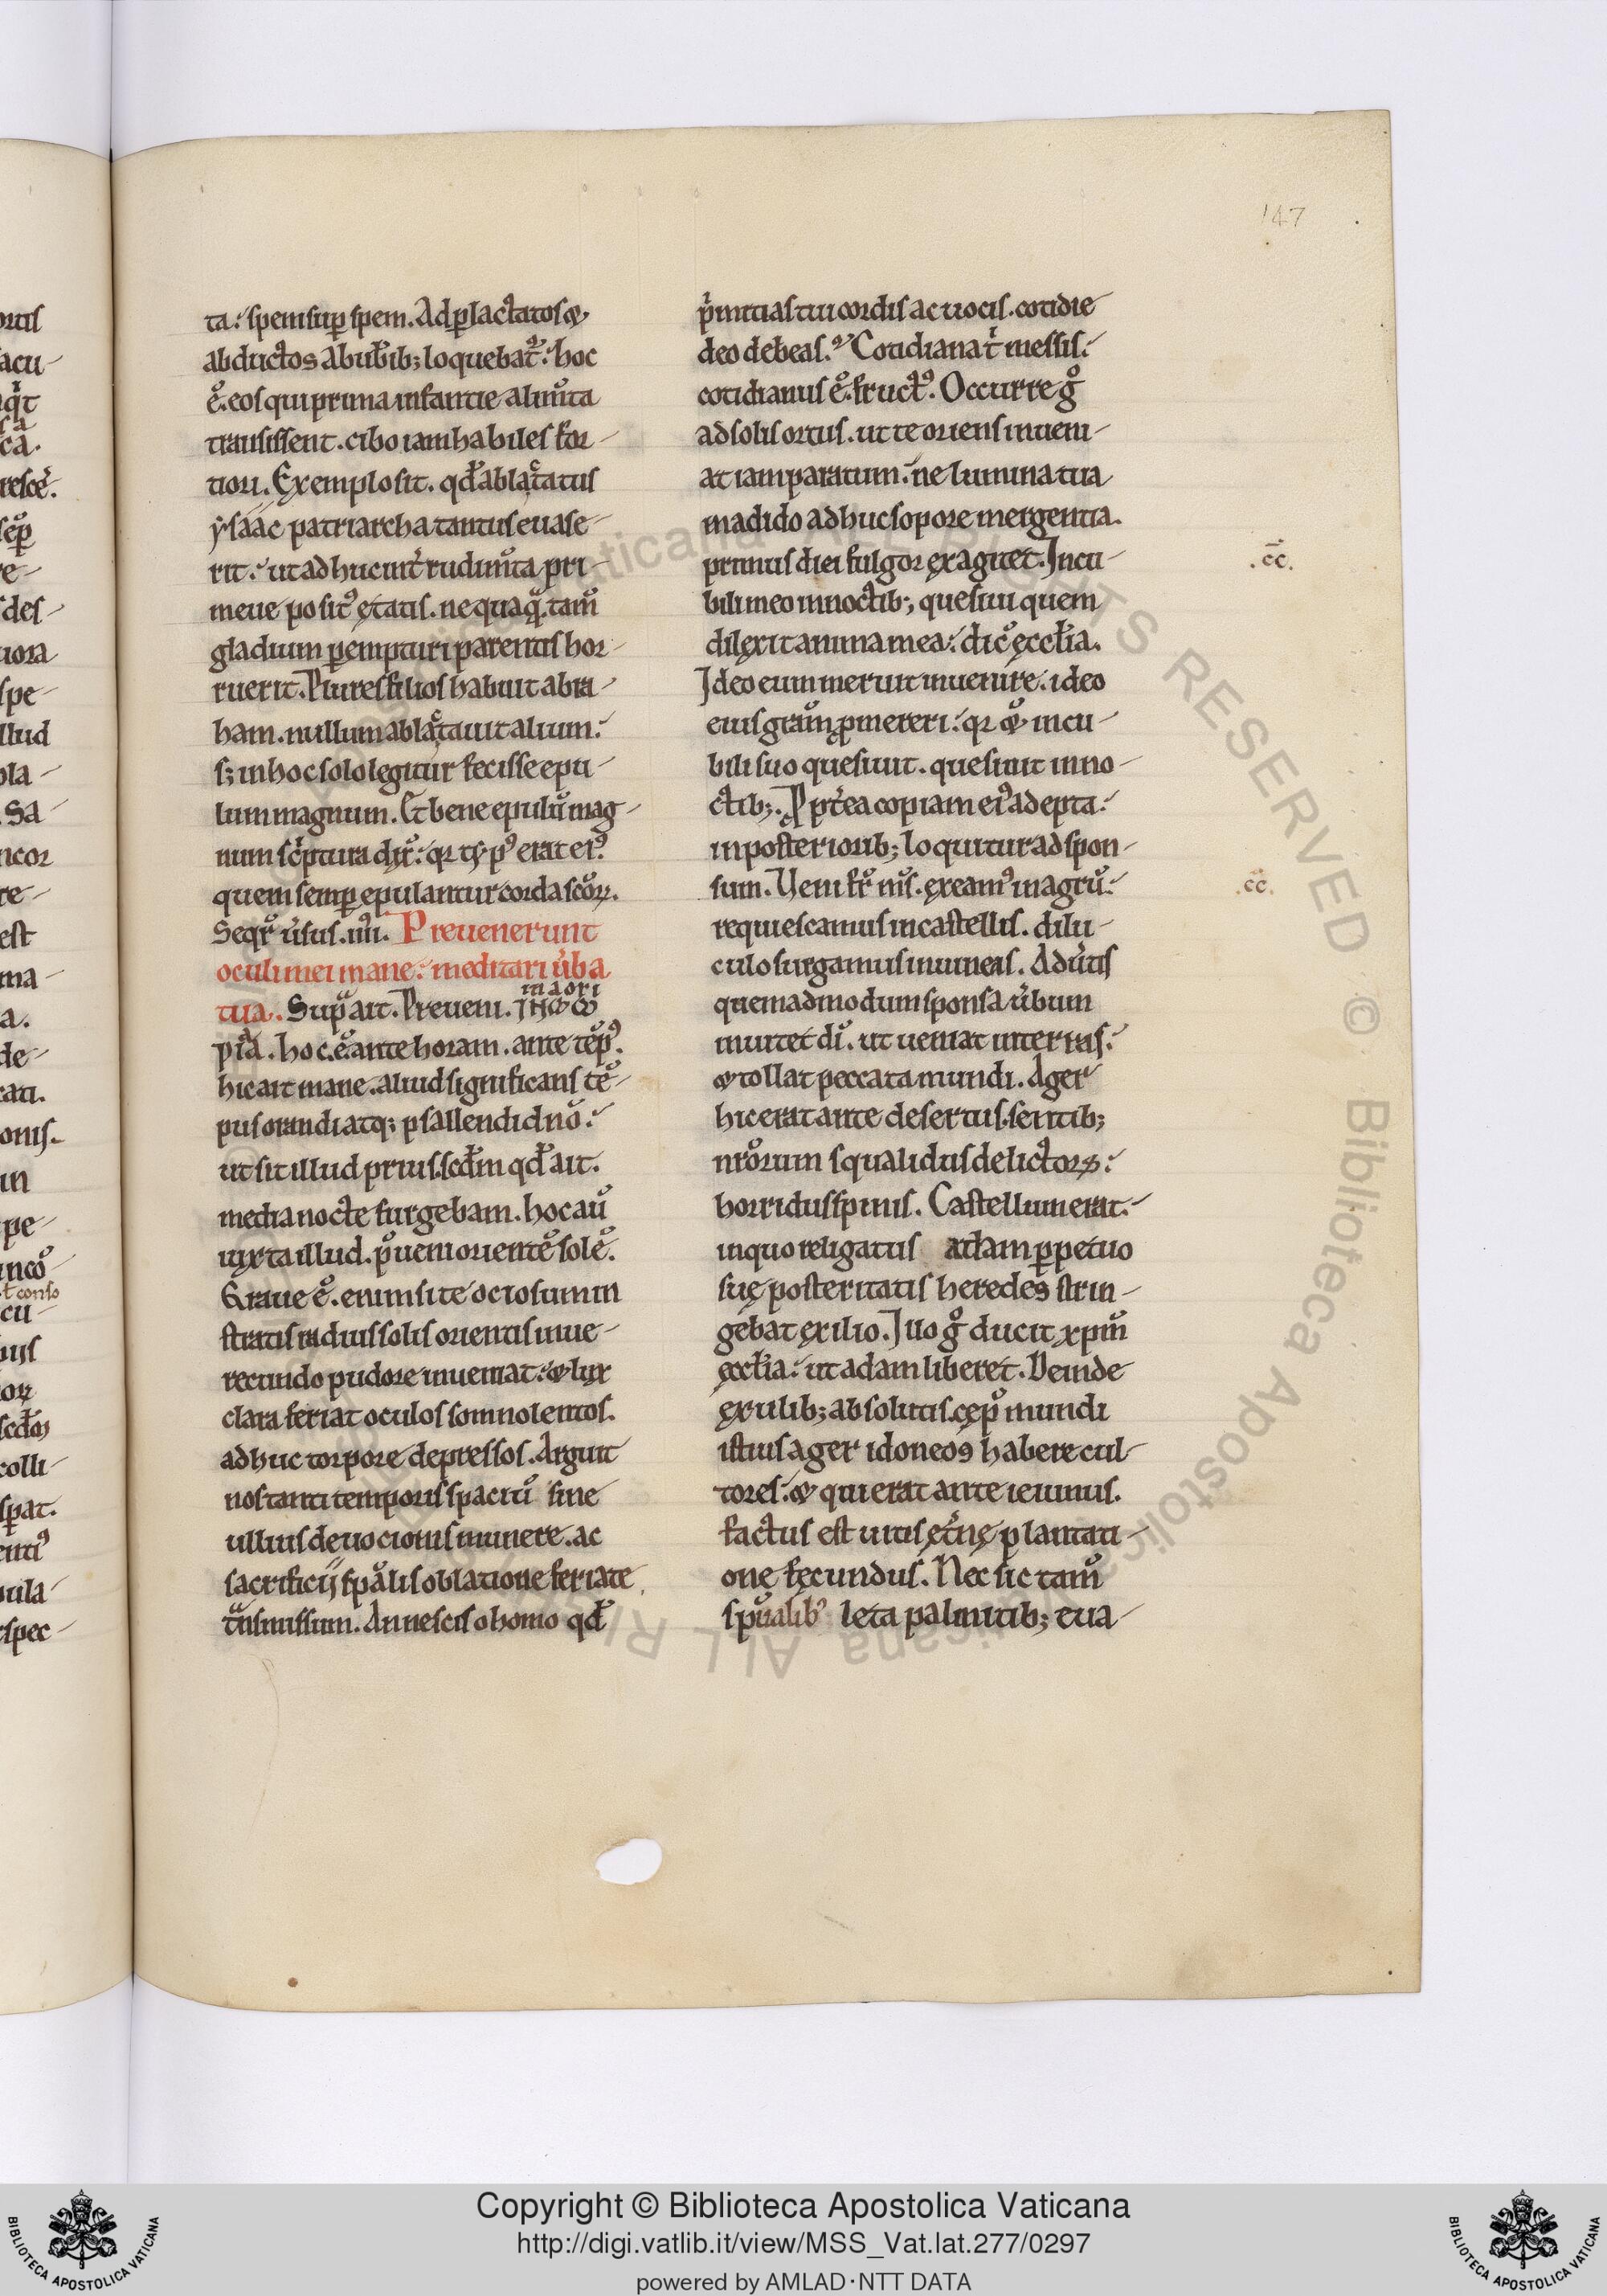 147
ortis
acu-
q̓t
ca.
resce᷑.
sēp
re-
des-
uora
spe-
llud
ola-
. Sa-
ncor
re-
est
ma-
a.
de-
rati.
onis.
in
pe-
inco᷑
ł conso
cu-
uis
colli-
spat.
enti᷒
tula-
spec-
ta. spem sup̱ spem. Ad p̱lactatos &
abductos ab ubib; loquebat᷑. hoc
ē. eos qui prima infantie alim̄ta
transissent. cibo iam habiles for-
tiori. Exemplo sit. qđ ablactatus
ysaac patriarcha tantus euase-
rit. ut adhuc int̓ rudim̄ta pri-
meue posit᷒ ętatis. nequaq̄. tam̄
gladium p̱empturi parentis hor-
ruerit. Plures filios habuit abra-
ham. nullum ablactauit alium.
s; in hoc solo legitur fecisse epu-
lum magnum. Et bene epulū mag-
num sc̓ptura dix̄. qr ty̓p᷒ erat ei᷒.
quem semp̱ epulantur corda sc̄oꝝ.
Seqr̄ u̓sus .iiii. Preuenerunt
oculi mei mane. meditari u̓ba
tua. Supᷓ ait. Preueni. ΙΝΑΩ
maori
ΡΙΑ. hoc. ē. ante horam. ante tēp᷒.
hic ait mane. aliud significans tē-
pus orandi atq; psallendi dn̄o.
ut sit illud prius. scđm qđ ait.
media nocte surgebam. hoc aū
iuxta illud. p̄ueni orientē solē.
Graue ē. enim si te ociosum in
stratis radius solis orientis inue-
recundo pudore inueniat. & lux
clara feriat oculos somnolentos.
adhuc torpore depressos. Arguit
nos tanti temporis spaciū sine
ullius deuocionis munere. ac
sacrificij sp̄alis oblatione feriate
tᷓnsmissum. An nescis o homo qđ
p̓mitias tui cordis ac uocis. cotidie
deo debeas. Cotidiana t̓ messis.
cotidianus ē. fruct᷒. Occurre g̊
ad solis ortus. ut te oriens inueni-
at iam paratum. ne lumina tua
madido adhuc sopore mergentia.
primus diei fulgor exagitet. In cu-
bili meo in noctib; quesiui quem
dilexit anima mea. dic̄ ęccłia.
Ideo eum meruit inuenire. ideo
eius gr̄am ꝓmereri. qr & in cu-
bili suo quesiuit. quesiuit in no-
ctib;. Ppt̓ea copiam ei᷒ adepta.
in posteriorib; loquitur ad spon-
sum. Ueni fr̄ m̄s. exeam᷒ in agrū.
requiescamus in castellis. dilu-
culo surgamus in uineas. Adu̓tis
quemadmodum sponsa u̓bum
inuitet di᷑. ut ueniat in terras.
& tollat peccata mundi. Ager
hic erat ante desertus. sentib;
nr̄orum squalidus delictorꝝ.
horridus spinis. Castellum erat.
in quo religatus adam p̱petuo
suę posteritatis heredes strin-
gebat exilio. Illo g̊ ducit xpm̄
ęccłia. ut adam liberet. Deinde
exulib; absolutis. cep̄ mundi
istius ager idoneos habere cul-
tores. & qui erat ante ieiunus.
factus est uitis ęt̓nę plantati-
one fecundus. Nec sic tam̄
sp̄ualib᷒ leta palmitib; tua-
.c̄c̄.
.cc.
Copyright © Biblioteca Apostolica Vaticana
http://digi.vatlib.it/view/MSS_Vat.lat.277/0297
powered by AMLAD·NTT DATA
BIBLIOTECA APOSTOLICA VATICANA
BIBLIOTECA APOSTOLICA VATICANA